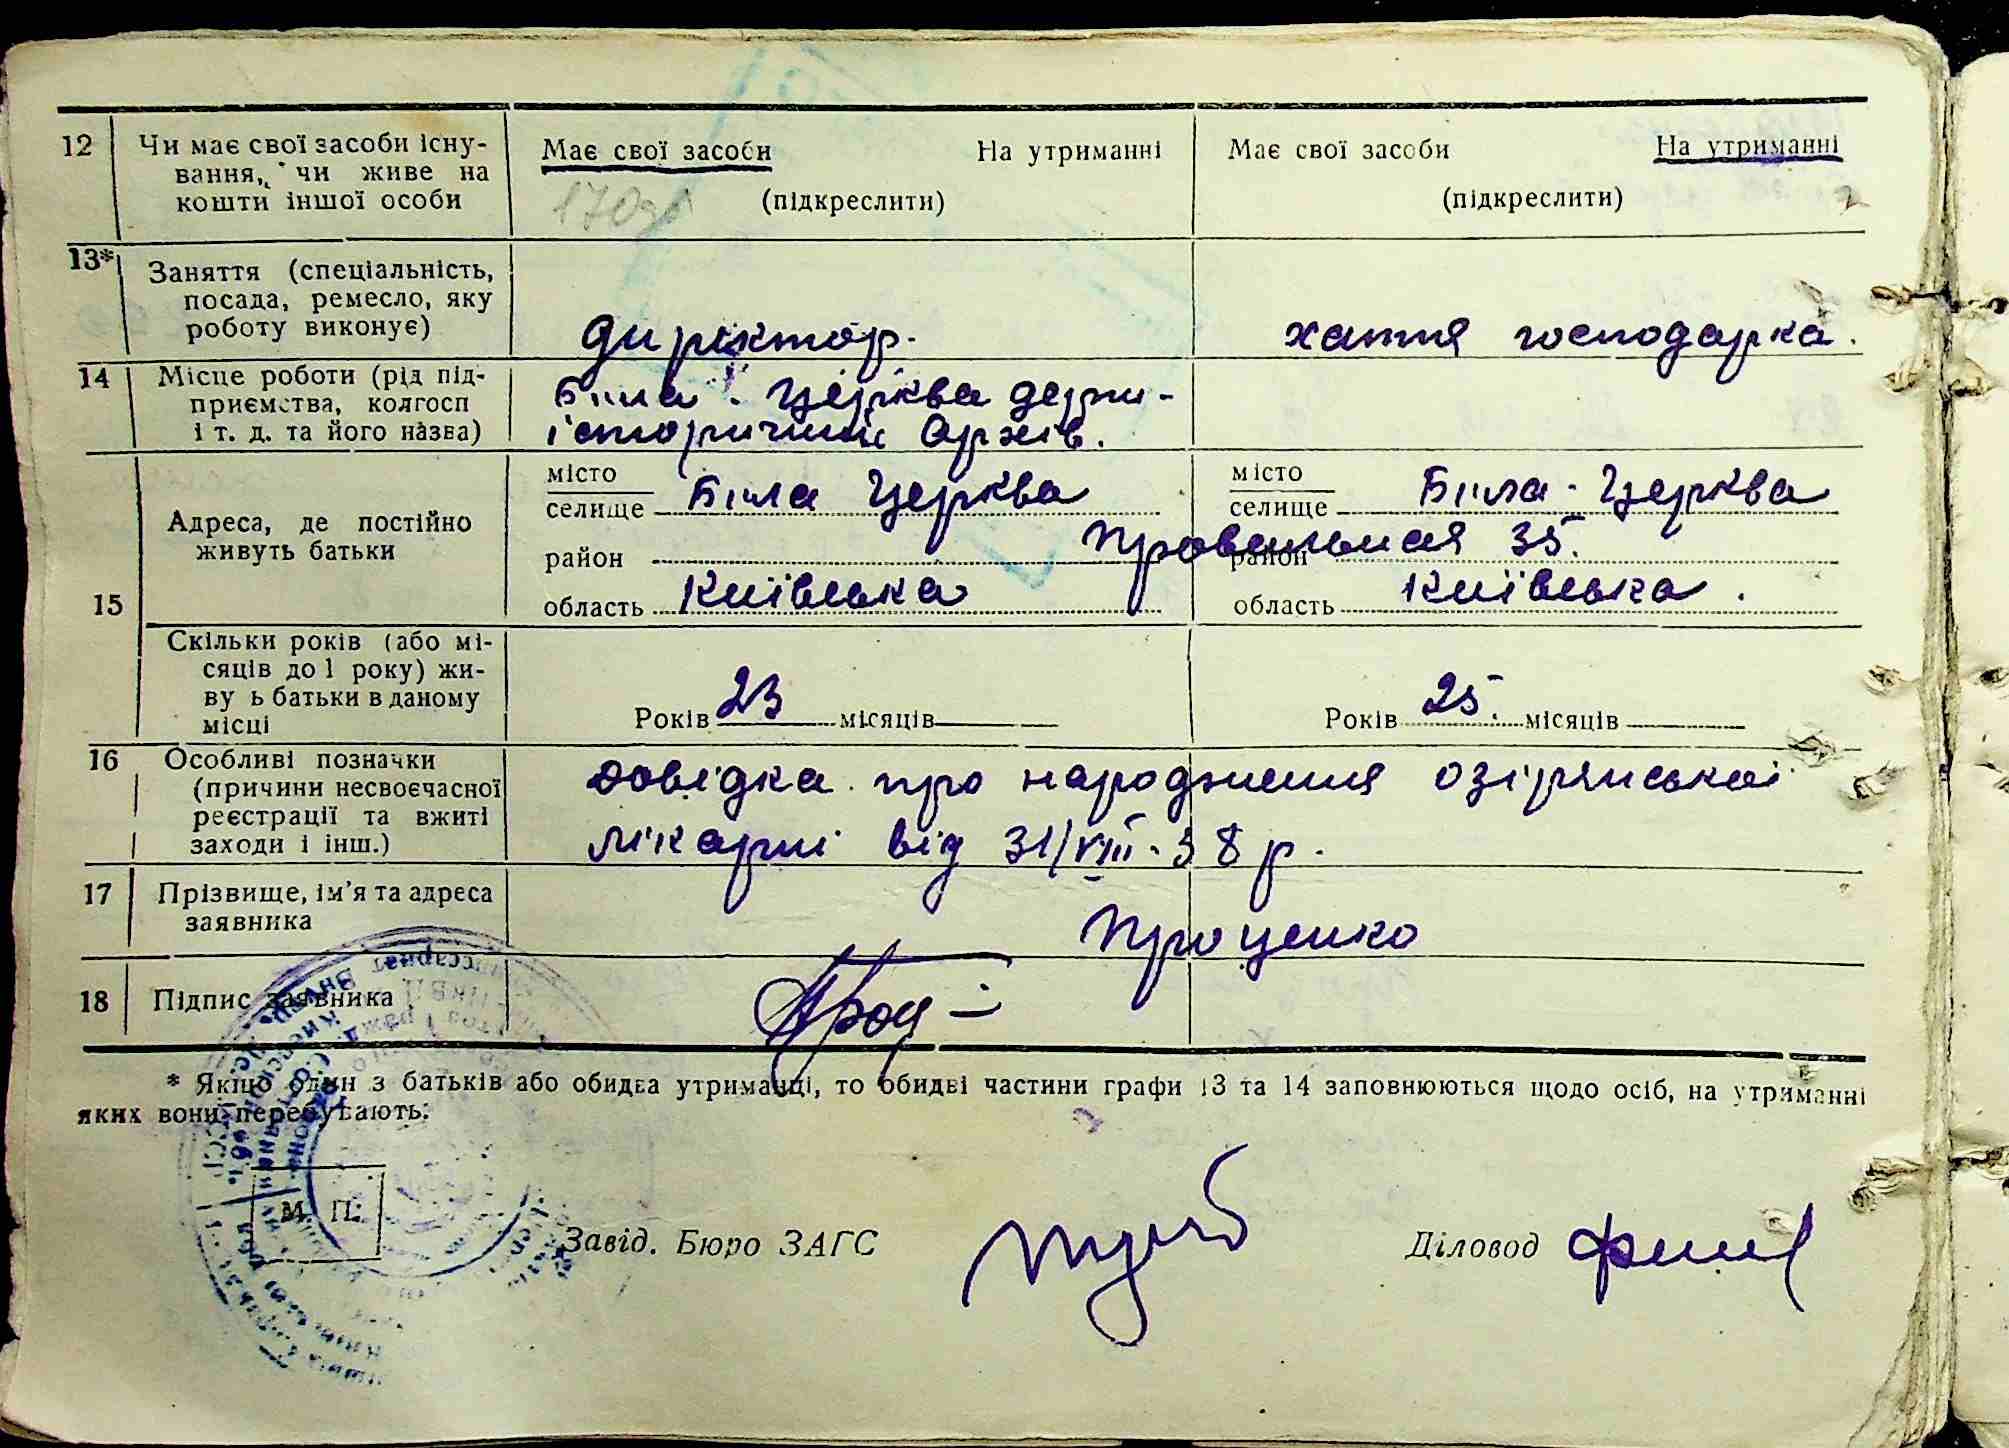 12 Чи має свої засоби існу-
вання, чи живе на
кошти іншої особи
Має свої засоби На утриманні
(підкреслити)
Має свої засоби На утриманні
(підкреслити)
13* Заняття (спеціальність,
посада, ремесло, яку
роботу виконує)
директор.
хатня господарка.
14 Місце роботи (рід під-
приємства, колгосп
і т. д. та його назва)
Біла. Церква держ-
історичний Архів.
15 Адреса, де постійно
живуть батьки
місто
селище Біла Церква
район
область Київська
місто
селище Біла-Церква
район 35.
область Київська.
Скільки років (або мі-
сяців до 1 року) жи-
ву ь батьки в даному
місці
Років 23 місяців
Років 25. місяців
16 Особливі позначки
(причини несвоєчасної
реєстрації та вжиті
заходи і інш.)
довідка про народження озірянської
лікарні від 31/VIII-38 р.
17 Прізвище, ім'я та адреса
заявника
Проценко
18 Підпис заявника
* Якщо один з батьків або обидва утриманці, то обидві частини графи 13 та 14 заповнюються щодо осіб, на утриманні
яких вони перебувають.
М. П.
Завід. Бюро ЗАГС
Діловод